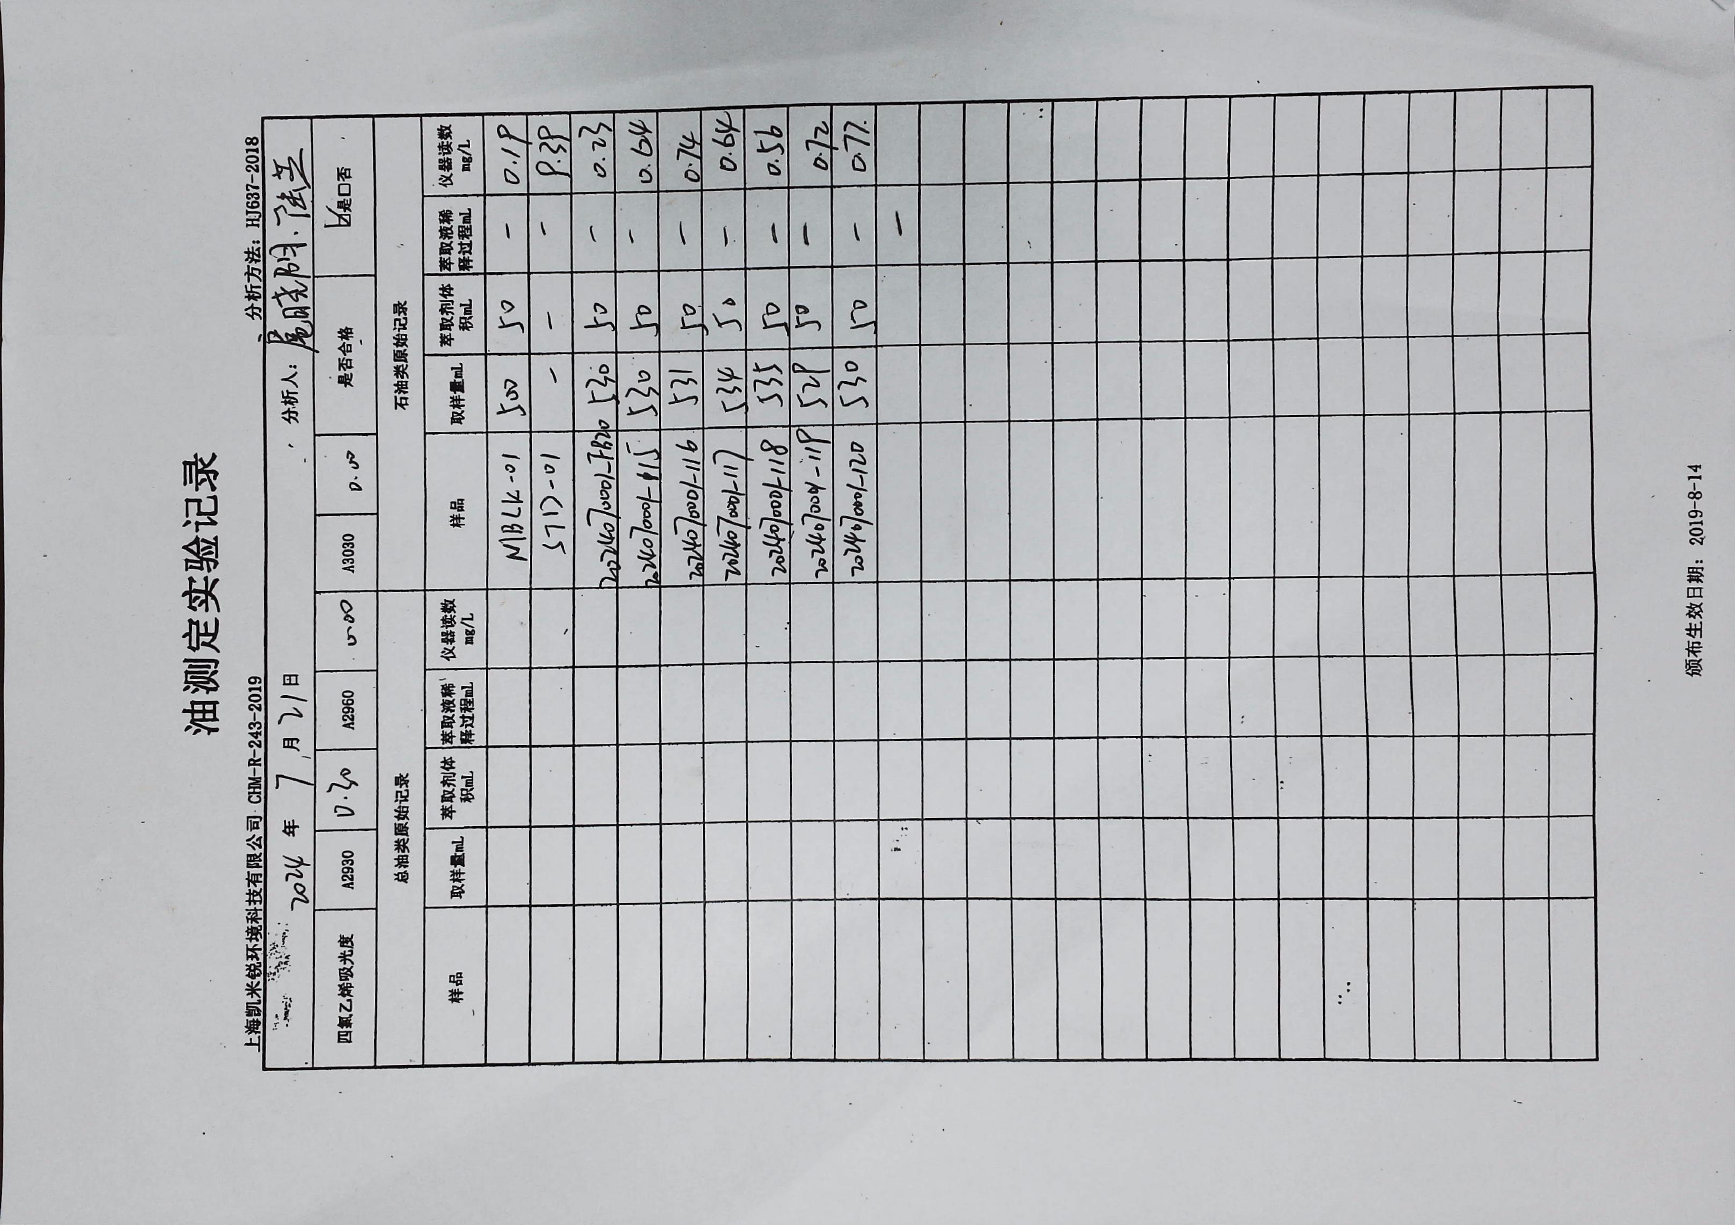 油测定实验记录
上海凯米锐环境科技有限公司 CHM-R-243-2019 分析方法：HJ637-2018
2024 年 7 月 21 日 分析人：
四氯乙烯吸光度 A2930 0.30 A2960 0.00 A3030 0.00 是否合格 ☑是□否
总油类原始记录 石油类原始记录
样品 取样量mL 萃取剂体积mL 萃取液稀释过程mL 仪器读数mg/L 样品 取样量mL 萃取剂体积mL 萃取液稀释过程mL 仪器读数mg/L
MBLK-01 500 50 — 0.19
STD-01 — — — 9.39
202407000-FB20 530 50 — 0.23
202407000-115 530 50 — 0.64
202407000-116 531 50 — 0.74
202407000-117 534 50 — 0.64
202407000-118 535 50 — 0.56
202407000-119 529 50 — 0.72
202407000-120 530 50 — 0.77
—
颁布生效日期：2019-8-14